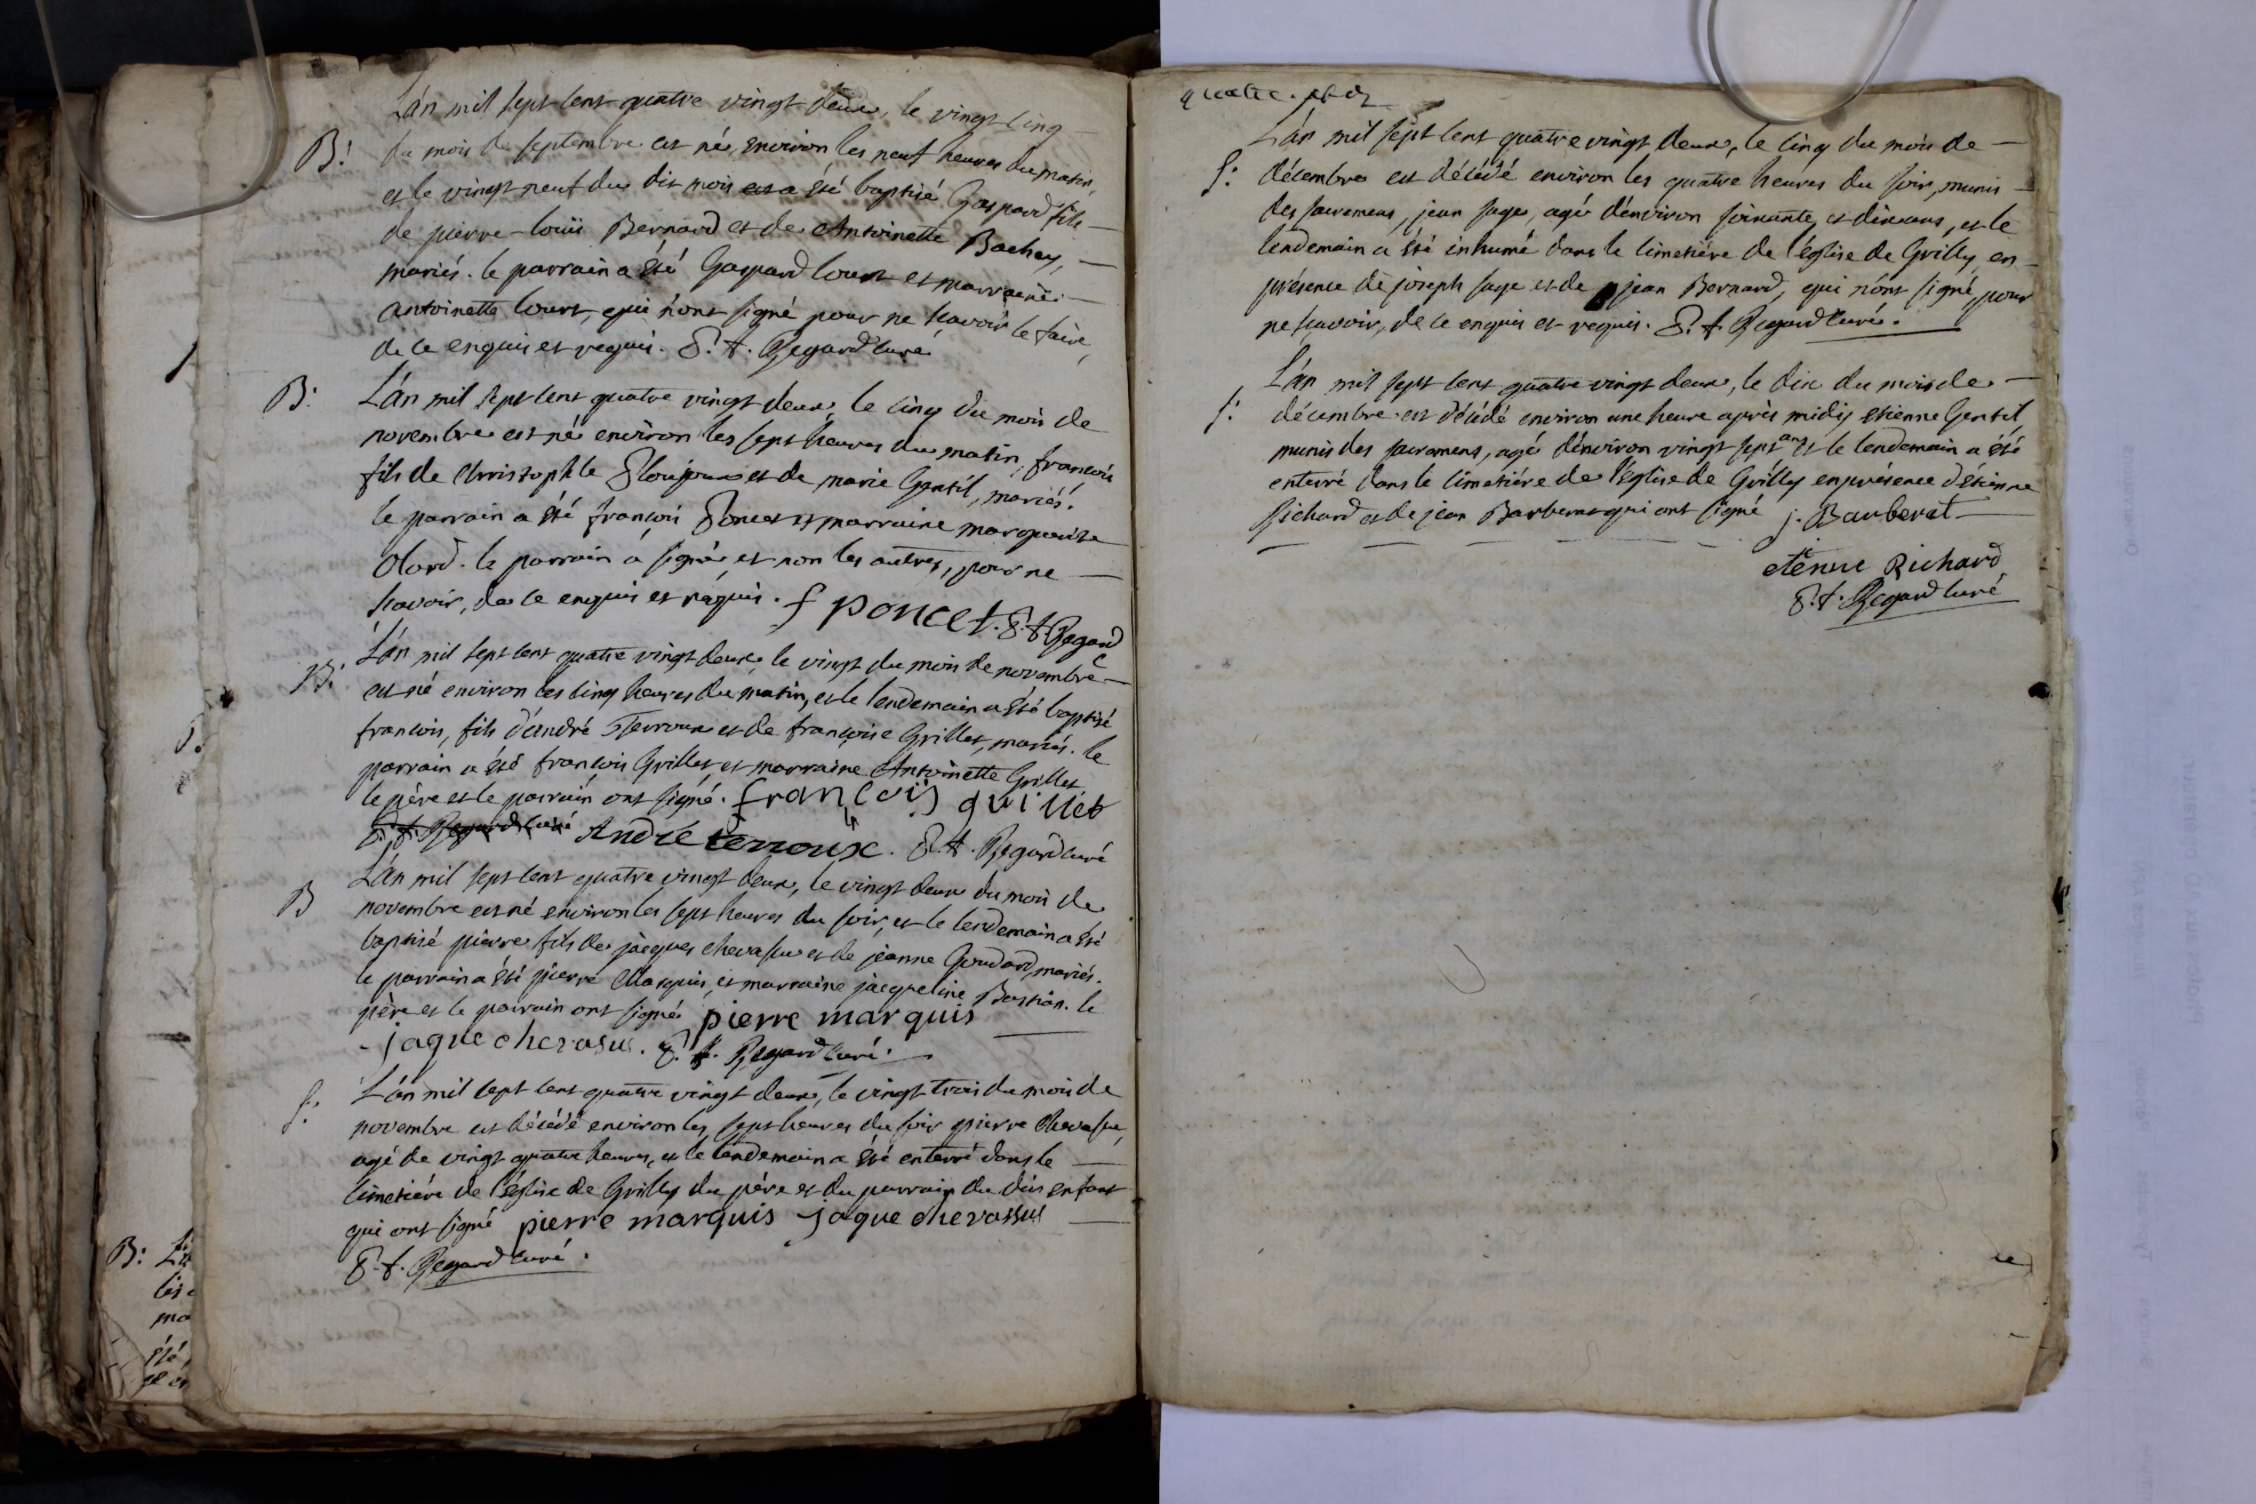 L'an mil sept cent quatre vingt deux, le vingt cinq
B: du mois de septembre est né, environ les neuf heures du matin,
et le vingt neuf du dit mois a été baptisé Gaspard fils
de pierre-louis Bernard et de Antoinette Bachey,
mariés. le parrain a été Gaspard court et marraine
antoinette court, qui n'ont signé pour ne scavoir le faire,
de ce enquis et requis. Regard curé
B: L'an mil sept cent quatre vingt deux, le cinq du mois de
novembre est né environ les sept heures du matin, francois
fils de Christophle et de marie Gentil, mariés.
le parrain a été francois Poncet et marraine marguerite
olard. le parrain a signé et non les autres, pour ne
scavoir, de ce enquis et requis. f poncet. Regard
B: L'an mil sept cent quatre vingt deux, le vingt du mois de novembre
est né environ les cinq heures du matin, et le lendemain a été baptisé
francois, fils d'andré Terroux et de francoise Grillet, mariés. le
parrain a été francois Grillet et marraine Antoinette Grillet
le père et le parrain ont signé. françois grillet
Regard curé André terroux. Regard curé
L'an mil sept cent quatre vingt deux, le vingt deux du mois de
B novembre est né environ les sept heures du soir, et le lendemain a été
baptisé pierre fils de jacques chevassu et de jeanne Goudard, mariés.
le parrain a été pierre Marquis, et marraine jacqueline Bastian. le
père et le parrain ont signé pierre marquis
jaque chevasus. Regard curé.
S: L'an mil sept cent quatre vingt deux, le vingt trois du mois de
novembre est décédé environ les sept heures du soir pierre Chevassu,
agé de vingt quatre heures, et le lendemain a été enterré dans le
cimetiére de l'église de Grilly du père et du parrain du dit enfant
qui ont signé pierre marquis jaque chevassus
Regard curé.
B:
quatre.
L'an mil sept cent quatre vingt deux, le cinq du mois de
S: décembre est décédé environ les quatre heures du soir, munis
des sacremens, jean sage, agé d'environ soixante et dix ans, et le
lendemain a été inhumé dans le cimetiére de l'église de Grilly, en
présence de joseph sage et de jean Bernard, qui n'ont signé pour
ne scavoir, de ce enquis et requis. Regard curé.
L'an mil sept cent quatre vingt deux, le dix du mois de
S: décembre est décédé environ une heure après midy etienne Gentil,
munis des sacremens, agé d'environ vingt sept ans et le lendemain a été
enterré dans le cimetiére de l'église de Grilly en présence d'étienne
Richard et de jean Barberat qui ont signé j. Barberat
etênne Richard
Regard curé